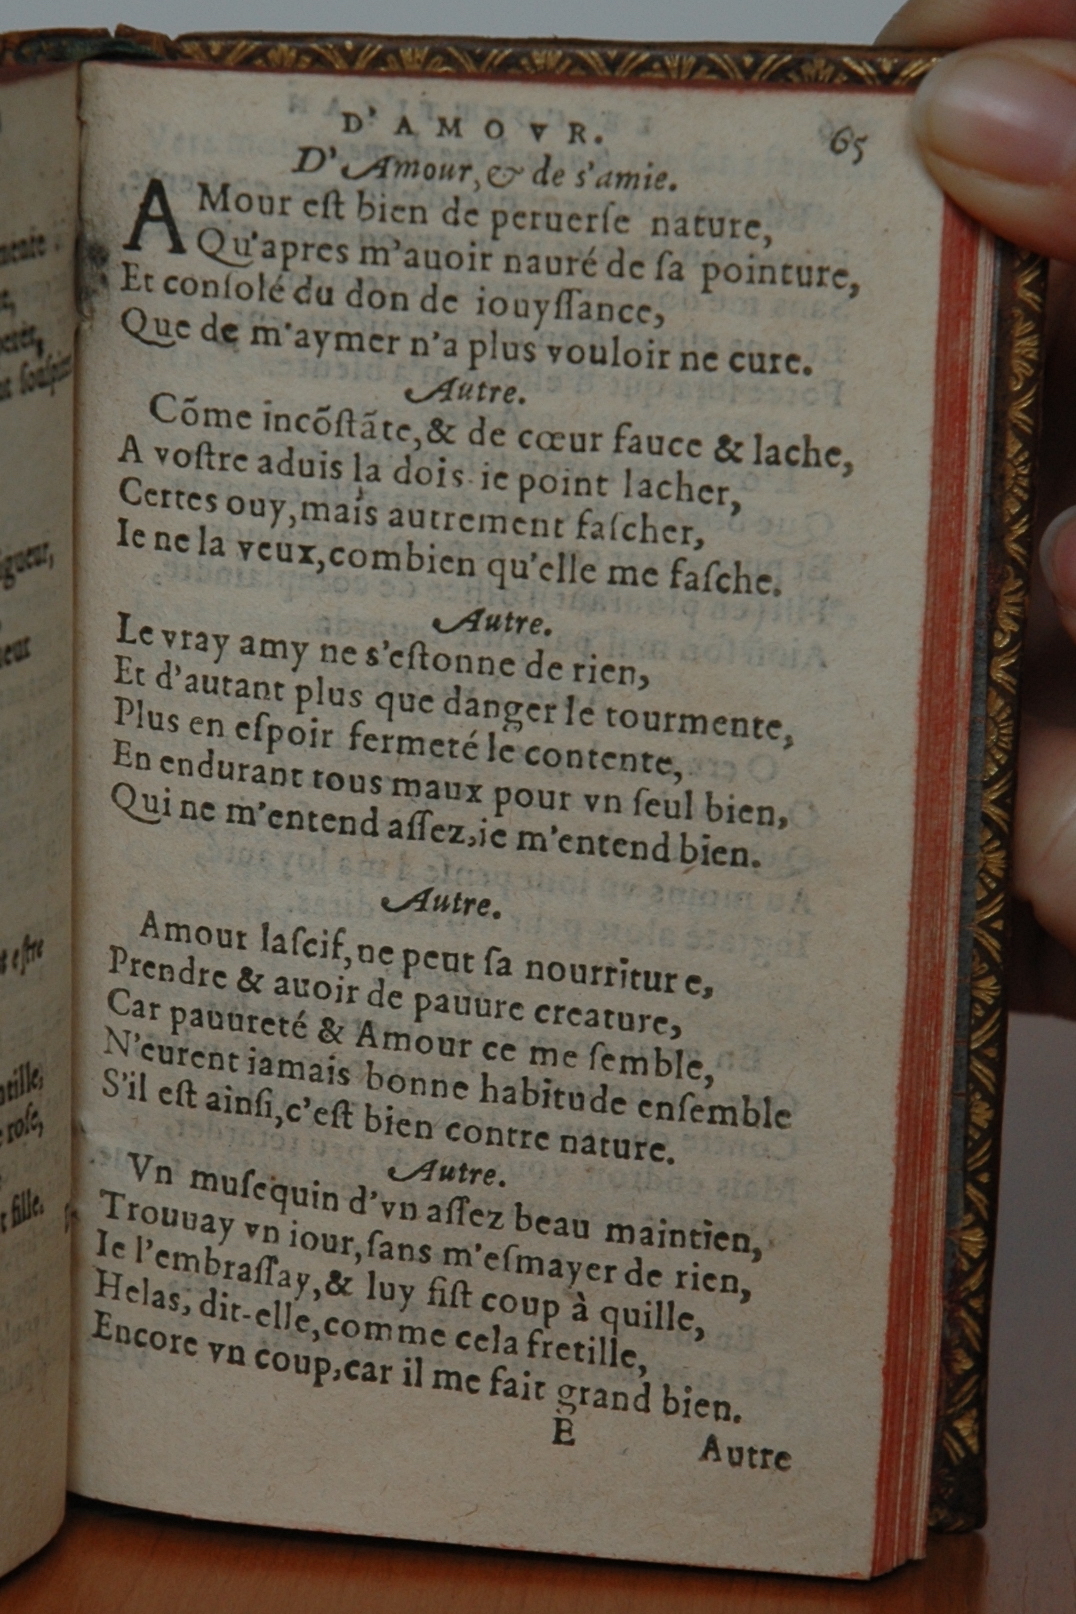 mente
perer,
igueur,
ieur
t estre
ntille,
rose,
t fille.
D'AMOVR. 65
D'Amour, & de s'amie.
AMour eſt bien de peruerſe nature,
Qu'apres m'auoir nauré de ſa pointure,
Et conſolé du don de iouyſſance,
Que de m'aymer n'a plus vouloir ne cure.
Autre.
Cõme incõſtãte, & de cœur fauce & lache,
A voſtre aduis la dois-ie point lacher,
Certes ouy, mais autrement faſcher,
Ie ne la veux, combien qu'elle me faſche.
Autre.
Le vray amy ne s'eſtonne de rien,
Et d'autant plus que danger le tourmente,
Plus en eſpoir fermeté le contente,
En endurant tous maux pour vn ſeul bien,
Qui ne m'entend aſſez, ie m'entend bien.
Autre.
Amour laſcif, ne peut ſa nourriture,
Prendre & auoir de pauure creature,
Car pauureté & Amour ce me ſemble,
N'eurent iamais bonne habitude enſemble
S'il eſt ainſi, c'eſt bien contre nature.
Autre.
Vn muſequin d'vn aſſez beau maintien,
Trouuay vn iour, ſans m'eſmayer de rien,
Ie l'embraſſay, & luy fiſt coup à quille,
Helas, dit-elle, comme cela fretille,
Encore vn coup, car il me fait grand bien.
E Autre